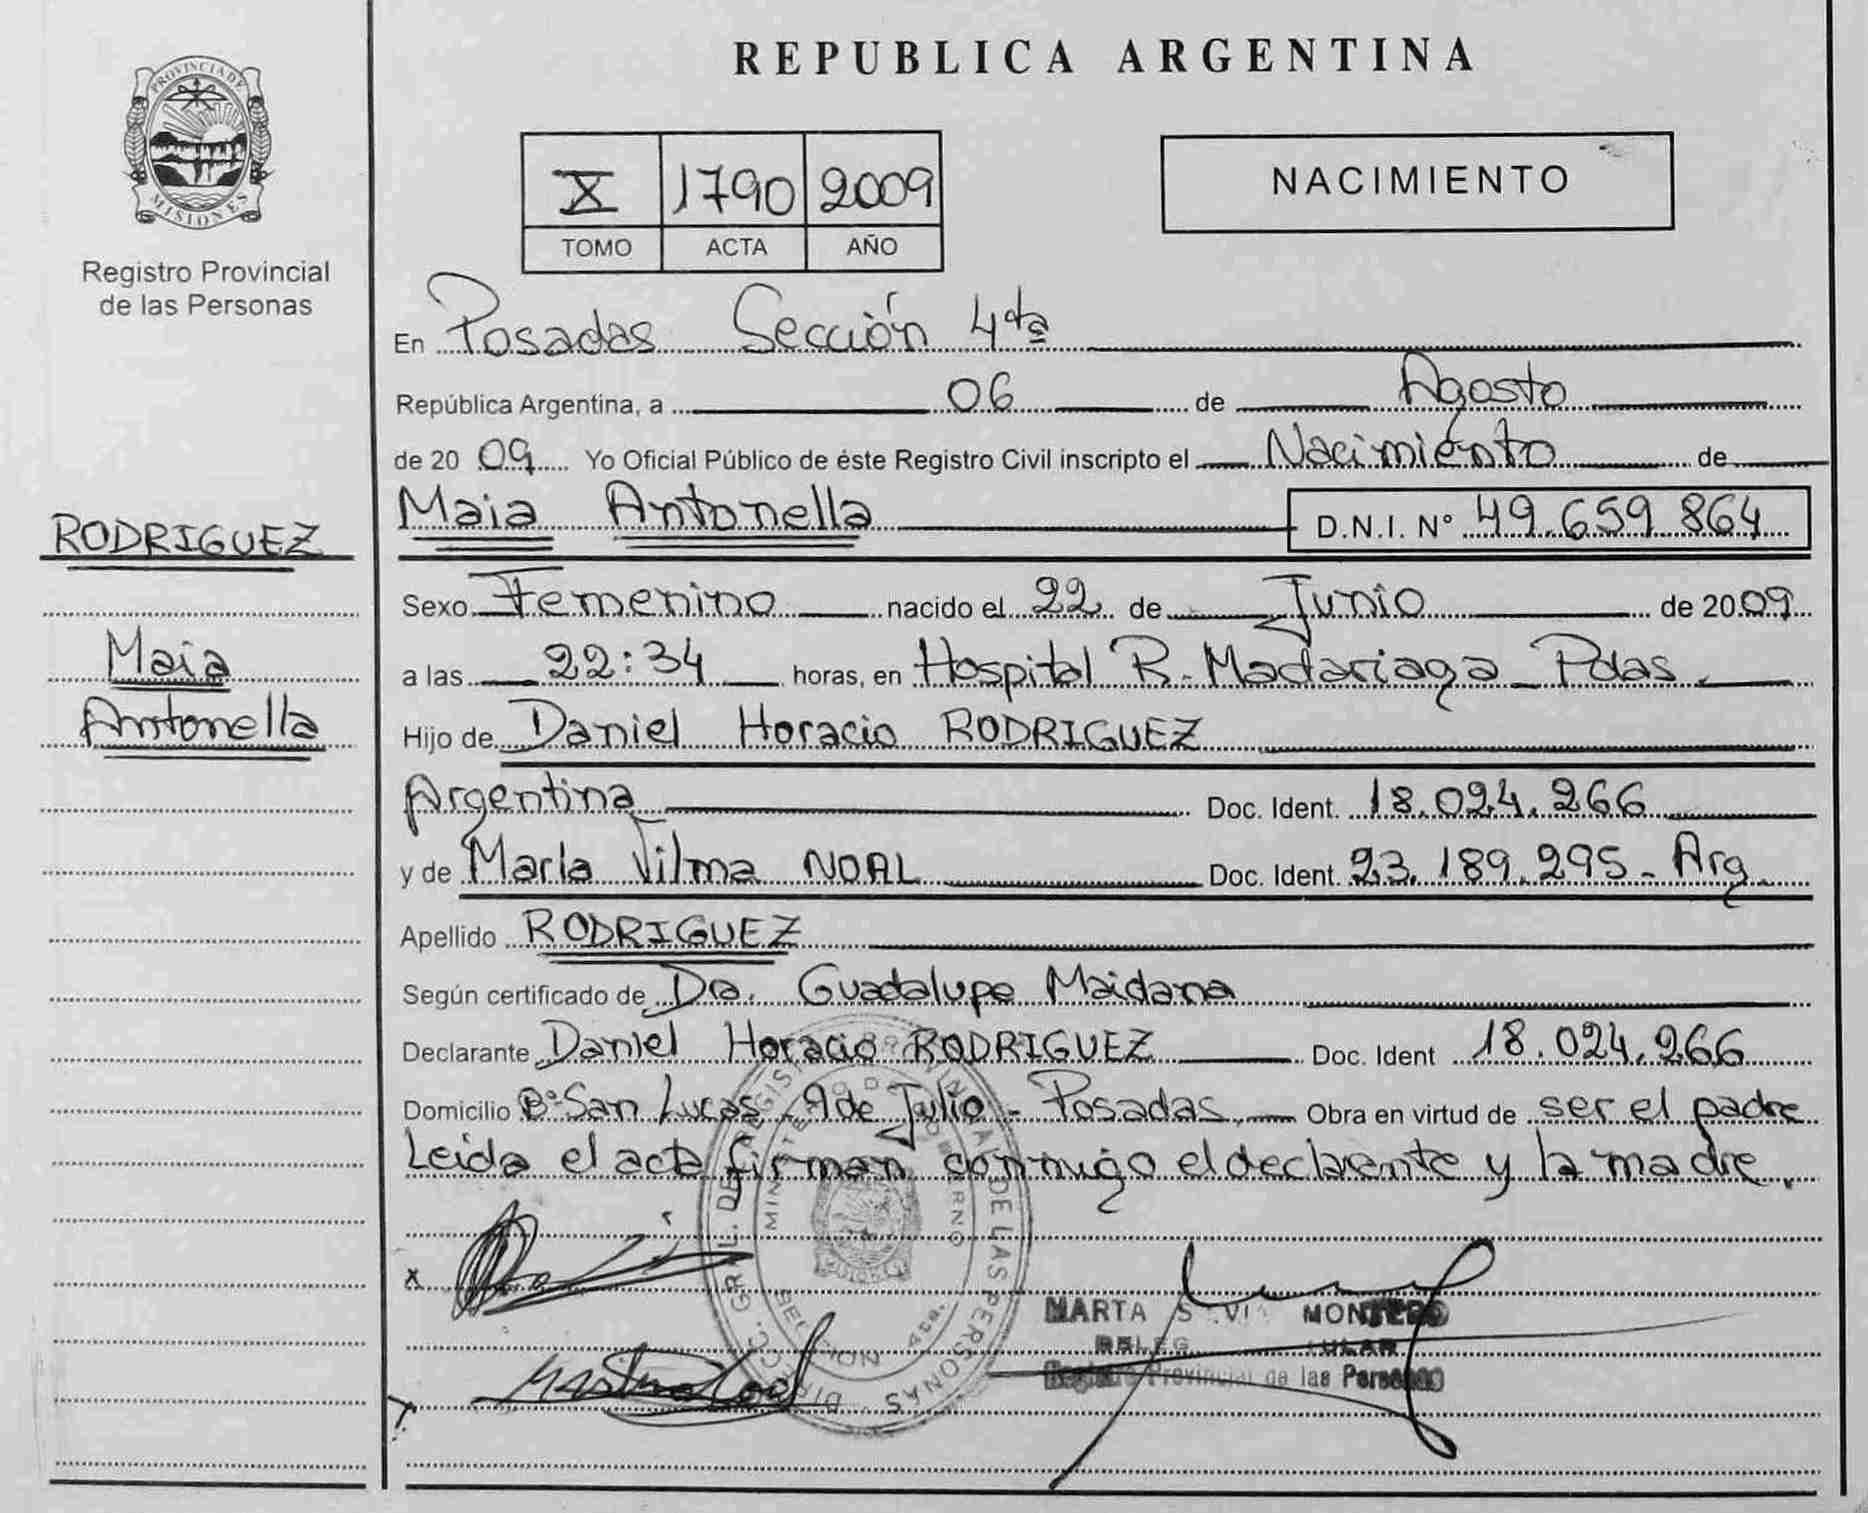 REPUBLICA ARGENTINA
PROVINCIA DE
MISIONES
Registro Provincial
de las Personas
X 1790 2009
TOMO ACTA AÑO
NACIMIENTO
En Posadas Sección 4ta
República Argentina, a 06 de Agosto
de 20 09 Yo Oficial Público de éste Registro Civil inscripto el Nacimiento de
Maia Antonella D.N.I. Nº 49.659.864
RODRIGUEZ
Maia
Antonella
Sexo Femenino nacido el 22 de Junio de 2009
a las 22:34 horas, en Hospital R. Madariaga - Pdas.
Hijo de Daniel Horacio RODRIGUEZ
Argentina Doc. Ident. 18.024.266
y de María Vilma NOAL Doc. Ident. 23.189.295 - Arg.
Apellido RODRIGUEZ
Según certificado de Dra. Guadalupe Maidana
Declarante Daniel Horacio RODRIGUEZ Doc. Ident 18.024.266
Domicilio Bº San Lucas - 9 de Julio - Posadas Obra en virtud de ser el padre
Leida el acta firman conmigo el declarante y la madre.
x
MARTA MONTERO
Registro Provincial de las Personas
DE LAS PERSONAS
SECCION 4ta.